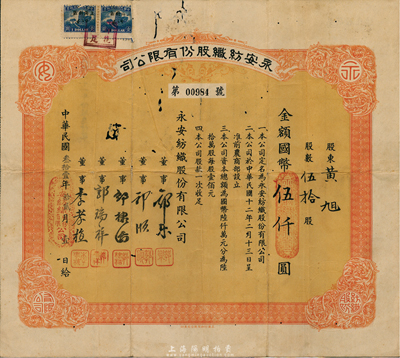 永安紡織股份有限公司
第 00984 號
股東 黃旭
股數 伍拾 股
金額國幣 伍仟 圓
一本公司定名為永安紡織股份有限公司
二本公司於中華民國十二年二月十三日呈
准前農商部設立
三本公司資本總額為國幣陸仟萬元分為陸
拾萬股每股壹佰元
四本公司股款一次收足
永安紡織股份有限公司
董事
董事
董事
董事 郭瑞祥
董事
中華民國 年 月 日給
永
安